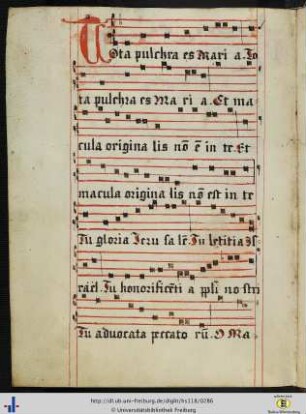 Tota pulchra es Mari a. To
ta pulchra es Ma ri a. Et ma
cula origina lis nō ē in te. Et
macula origina lis nō est in te
Tu gloria Jeru sa lē. Tu letitia Js
rael. Tu honorificēti a ppli no stri
Tu advocata peccato rū. O Ma
http://dl.ub.uni-freiburg.de/diglit/hs118/0286
© Universitätsbibliothek Freiburg